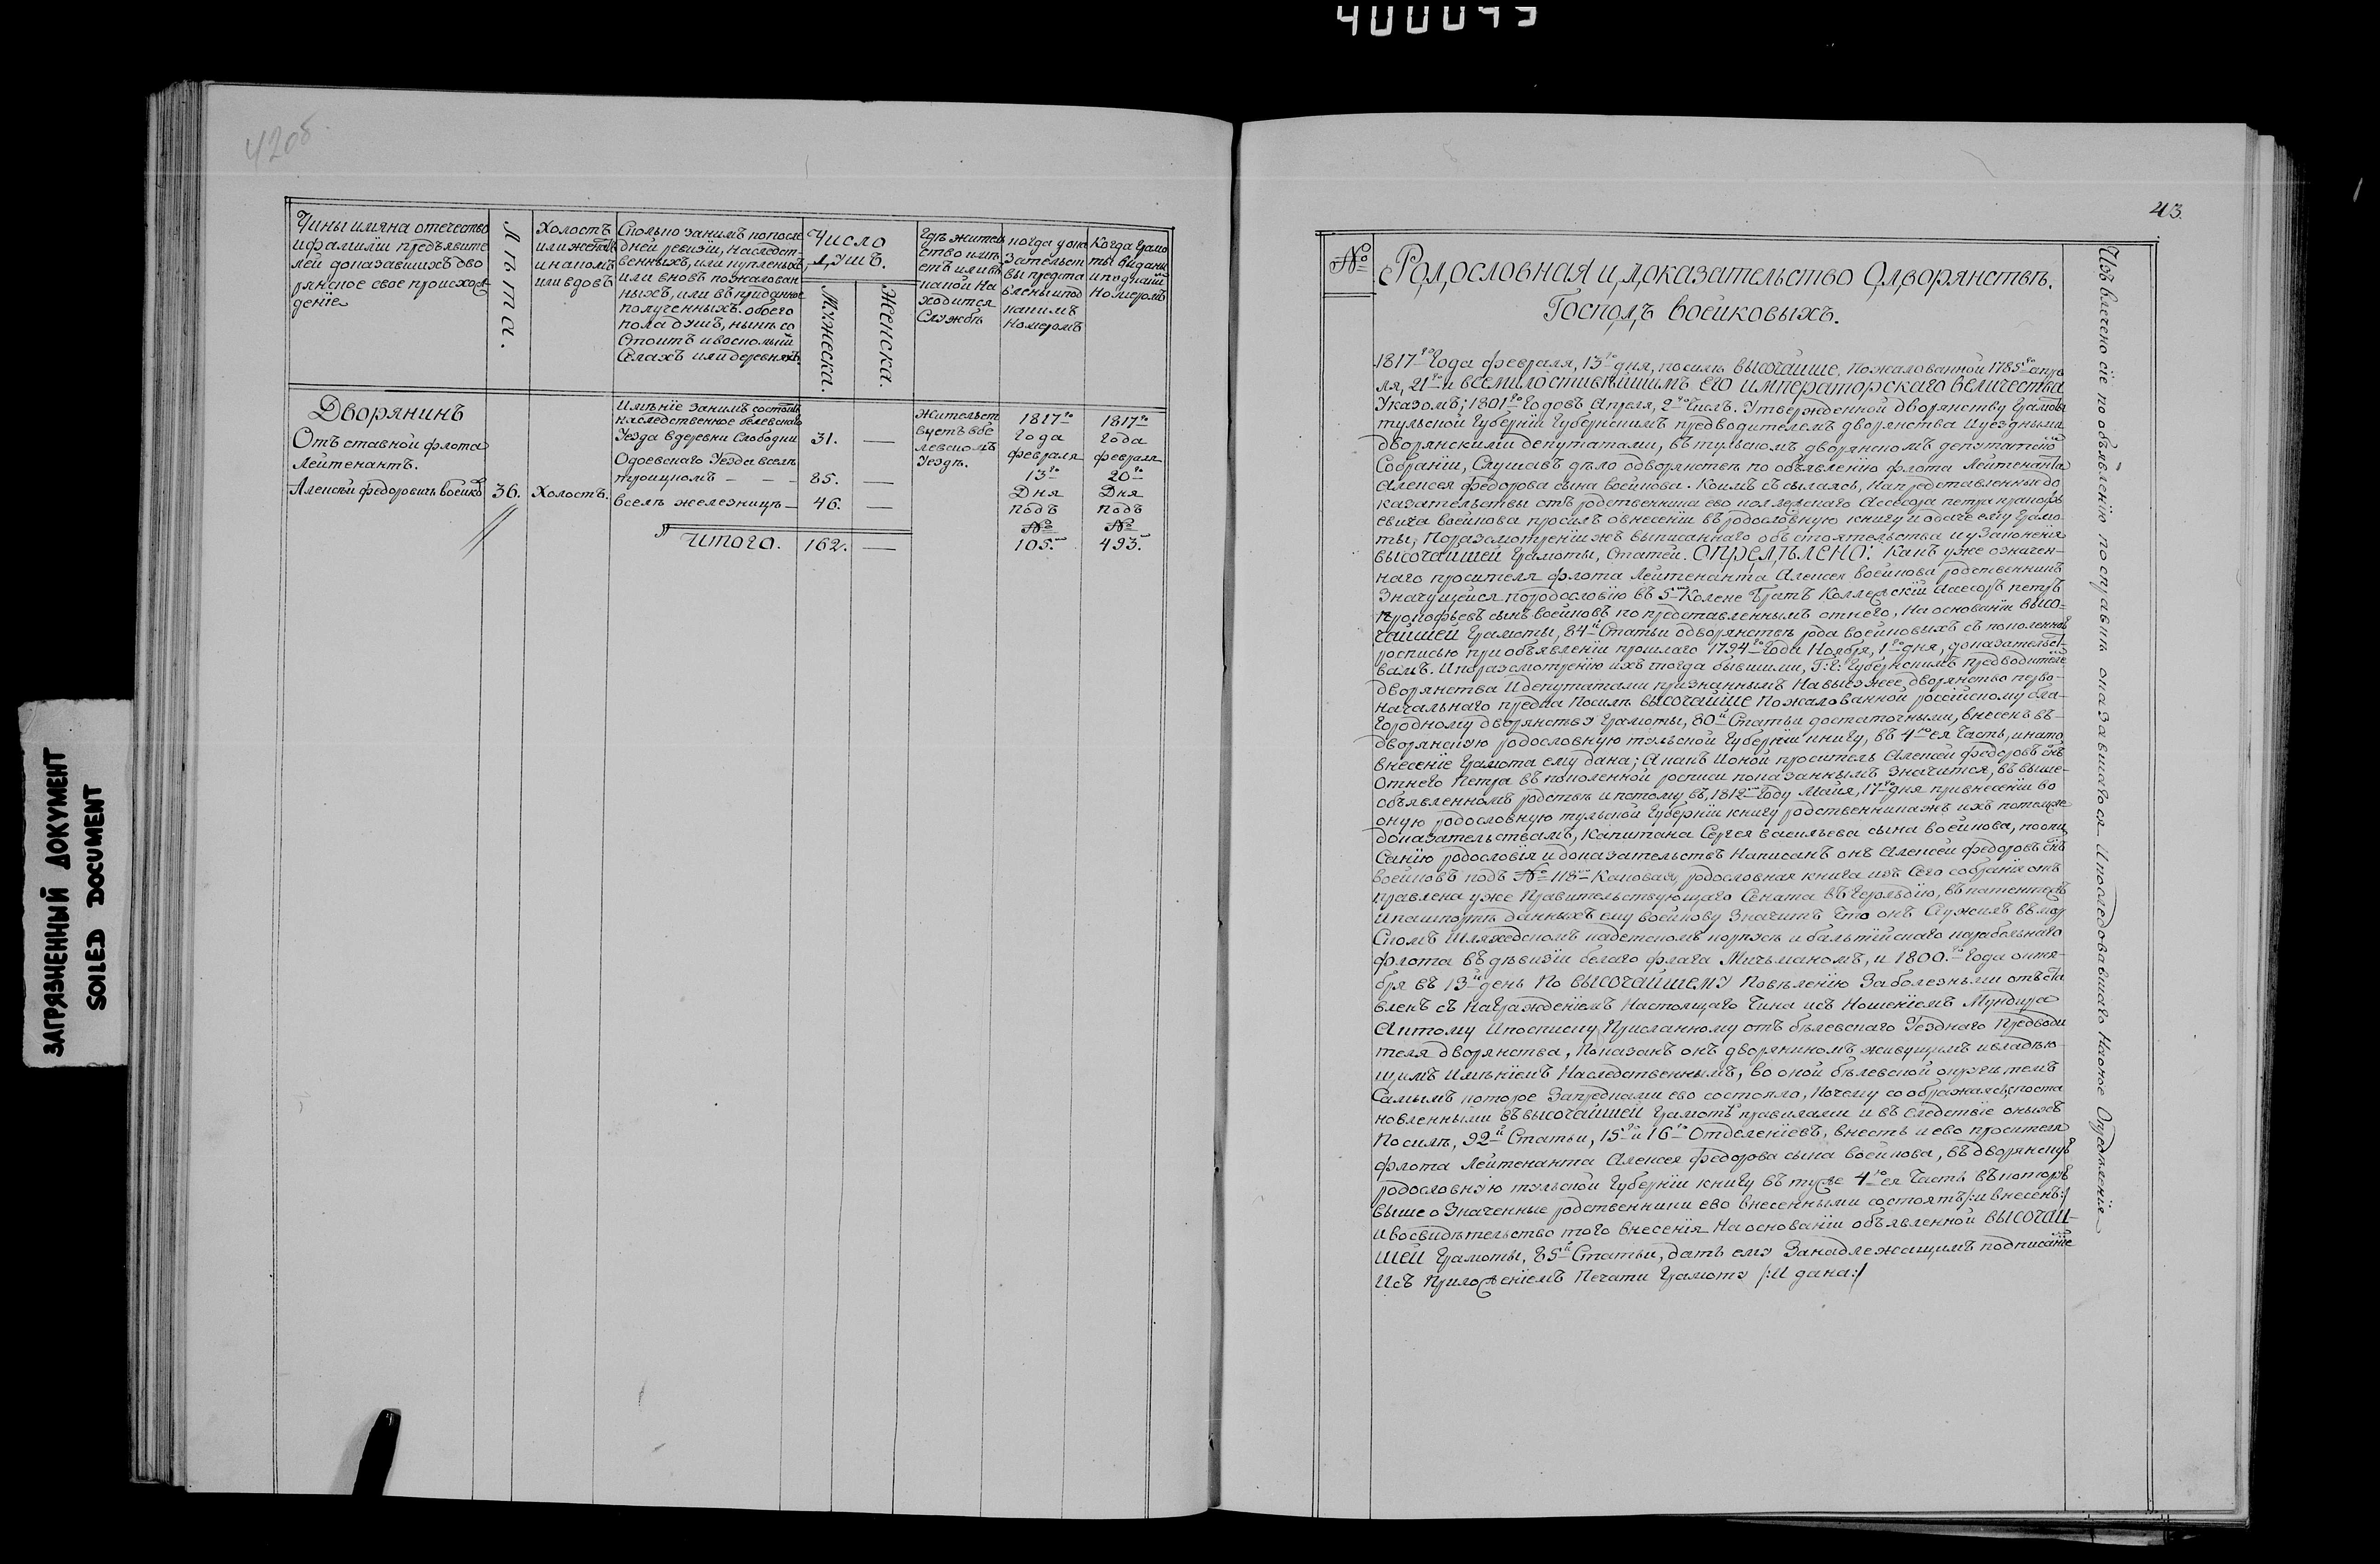 400043
42об.
Чины имяна отечество
и фамилïи предъявите
лей доказавшихъ дво
рянское свое происхож
денïе
Лѣта.
Холостъ
или женатъ
и накомъ
или вдовъ
Сколько занимъ попосле
дней ревизïи, наследст
венныхъ, или купленыхъ
или вновь пожалован
ныхъ, или въ приданное
полученныхъ. обоего
пола душъ, нынѣ со
стоитъ и воскольки
Селахъ или деревняхъ.
Число
душъ.
Мужеска.
Женска.
Гдѣ житель
ство имѣ
етъ или въ
какой на
ходится
Службѣ
когда у дока
зательст
вы предста
влены и под
какимъ
номеромъ
Когда грамо
ты выданы
и под какимъ
номеромъ
Дворянинъ
Отъ ставной флота
Лейтенантъ.
Алексѣй Федоровичь воейко
36.
Холостъ.
Имѣнïе занимъ состоитъ
наследственное белевскаго
Уезда вдеревни Слободки 31. —
Одоевскаго Уезда вселѣ
троицкомъ — — — 85. —
вселѣ железницѣ — 46. —
итого. 162. —
жительст
вуетъ вбе
левскомъ
Уездѣ.
1817го
Года
февраля
13го
Дня
подъ
№
105.
1817го
года
февраля
20го
Дня
подъ
№
493.
ЗАГРЯЗНЕННЫЙ ДОКУМЕНТ
SOILED DOCUMENT
43.
№
Родословная и доказательство Одворянствѣ.
Господъ воейковыхъ.
1817го Года февраля, 13го дня, посилѣ высочайше, пожалованной 1785го апре
ля, 21го и всемилостивѣйшимъ его императорскаго величества
Указомъ; 1801го Годовъ Апреля, 2го числъ. Утвержденной дворянству грамоты
тульской Губернïи Губернскимъ предводителемъ дворянства и уездными
дворянскими депутатами, въ тульскомъ дворянскомъ депутатско
Собранïи, Слушавъ дѣло одворянствѣ по объявленïю флота Лейтенанта
Алексея Федорова сына воейкова. Коимъ съсылаясь, на представленные до
казательствы отъ родственника ево коллежскаго Ассесора петра прокофь
евича воейкова просилъ овнесенïи въ родословную книгу и одаче ему грамо
ты; Поразсмотренïи жъ выписаннаго обстоятельства и узаконенïя
высочайшей Грамоты, Статей. ОПРЕДѢЛЕНО: Какъ уже означен-
наго просителя флота Лейтенанта Алексея воейкова родственникъ
Значущейся породословïю въ 5мъ Колене братъ Коллежскïй Ассесоръ петръ
прокофьевъ сынъ воейковъ по представленнымъ отнего, На основанïи высо-
чайшей Грамоты, 84й Статьи одворянствѣ рода воейковыхъ съ поколенно
росписью при объявленïи прошлаго 1794го Года Ноября, 1го дня, доказательст-
вамъ. И поразсмотренïю ихъ тогда бывшими, Г:С: Губернскимъ предводителе
дворянства и депутатами признаннымъ На выезжее дворянство перво-
начальнаго предка посилѣ высочайше пожалованной россïйскому бла-
городному дворянству грамоты, 80й Статьи достаточными, внесенъ въ-
дворянскую родословную тульской Губернïи книгу, въ 4ю ея Часть, и нато
внесенïе Грамота ему дана; А какъ и оной проситель Алексей Федоровъ снъ
отнего Петра въ поколенной росписи показаннымъ Значится, въ выше-
объявленномъ родствѣ и потому въ, 1812мъ Году Майя, 17го дня привнесенïи во
оную родословную тульской Губернïи книгу родственникажъ ихъ потомуже
доказательствамъ, капитана Сергея васильева сына воейкова, поопи
санïю родословïя и доказательствъ Написанъ онъ Алексей Федоровъ снъ
воейковъ подъ № 118мъ Каковая, родословная книга изъ Сего собранïя отъ
правлена уже правительствующаго Сената въ герольдïю, въ патентахъ
и пашпортѣ данныхъ ему воейкову Значитъ Что онъ Служилъ въ мор
скомъ шляхецкомъ кадетскомъ корпусѣ и балтïйскаго карабельнаго
флота въ дѣвизïи белаго флага Мичьманомъ, и 1800.го Года октя-
бря въ 13й день по высочайшему повѣленïю Заболезньми отъ ста
вленъ съ награжденïемъ настоящаго Чина и съ ношенïемъ Мундира
Апотому и посписку Присланному отъ бѣлевскаго Уезднаго предводи
теля дворянства, показанъ онъ дворяниномъ живущимъ и владѣю-
щимъ имѣнïемъ наследственнымъ, во оной бѣлевской округи темъ
Самымъ которое Запредками ево состояло, почему соображаясь споста
новленными въ высочайшей грамотѣ правилами и въ следствïе оныхъ
посилѣ, 92й Статьи, 15го и 16го Отделенïевъ, внесть и ево просителя
флота Лейтенанта Алексея Федорова сына воейкова, въ дворянскую
родословную тульской Губернïи книгу въ туже 4ю ея Часть въ которую
выше означенные родственники ево внесенными состоятъ /:и внесенъ:/
и во свидѣтельство того внесенïя на основанïи объявленной высочай-
шей грамоты, 85й Статьи, дать ему Занадлежащимъ подписанïе
И съ приложенïемъ печати грамоту /:И дана:/
Изъ влечено сïе по объявленïю посправкѣ оказавшагося И последовавшаго На оное Определенïя